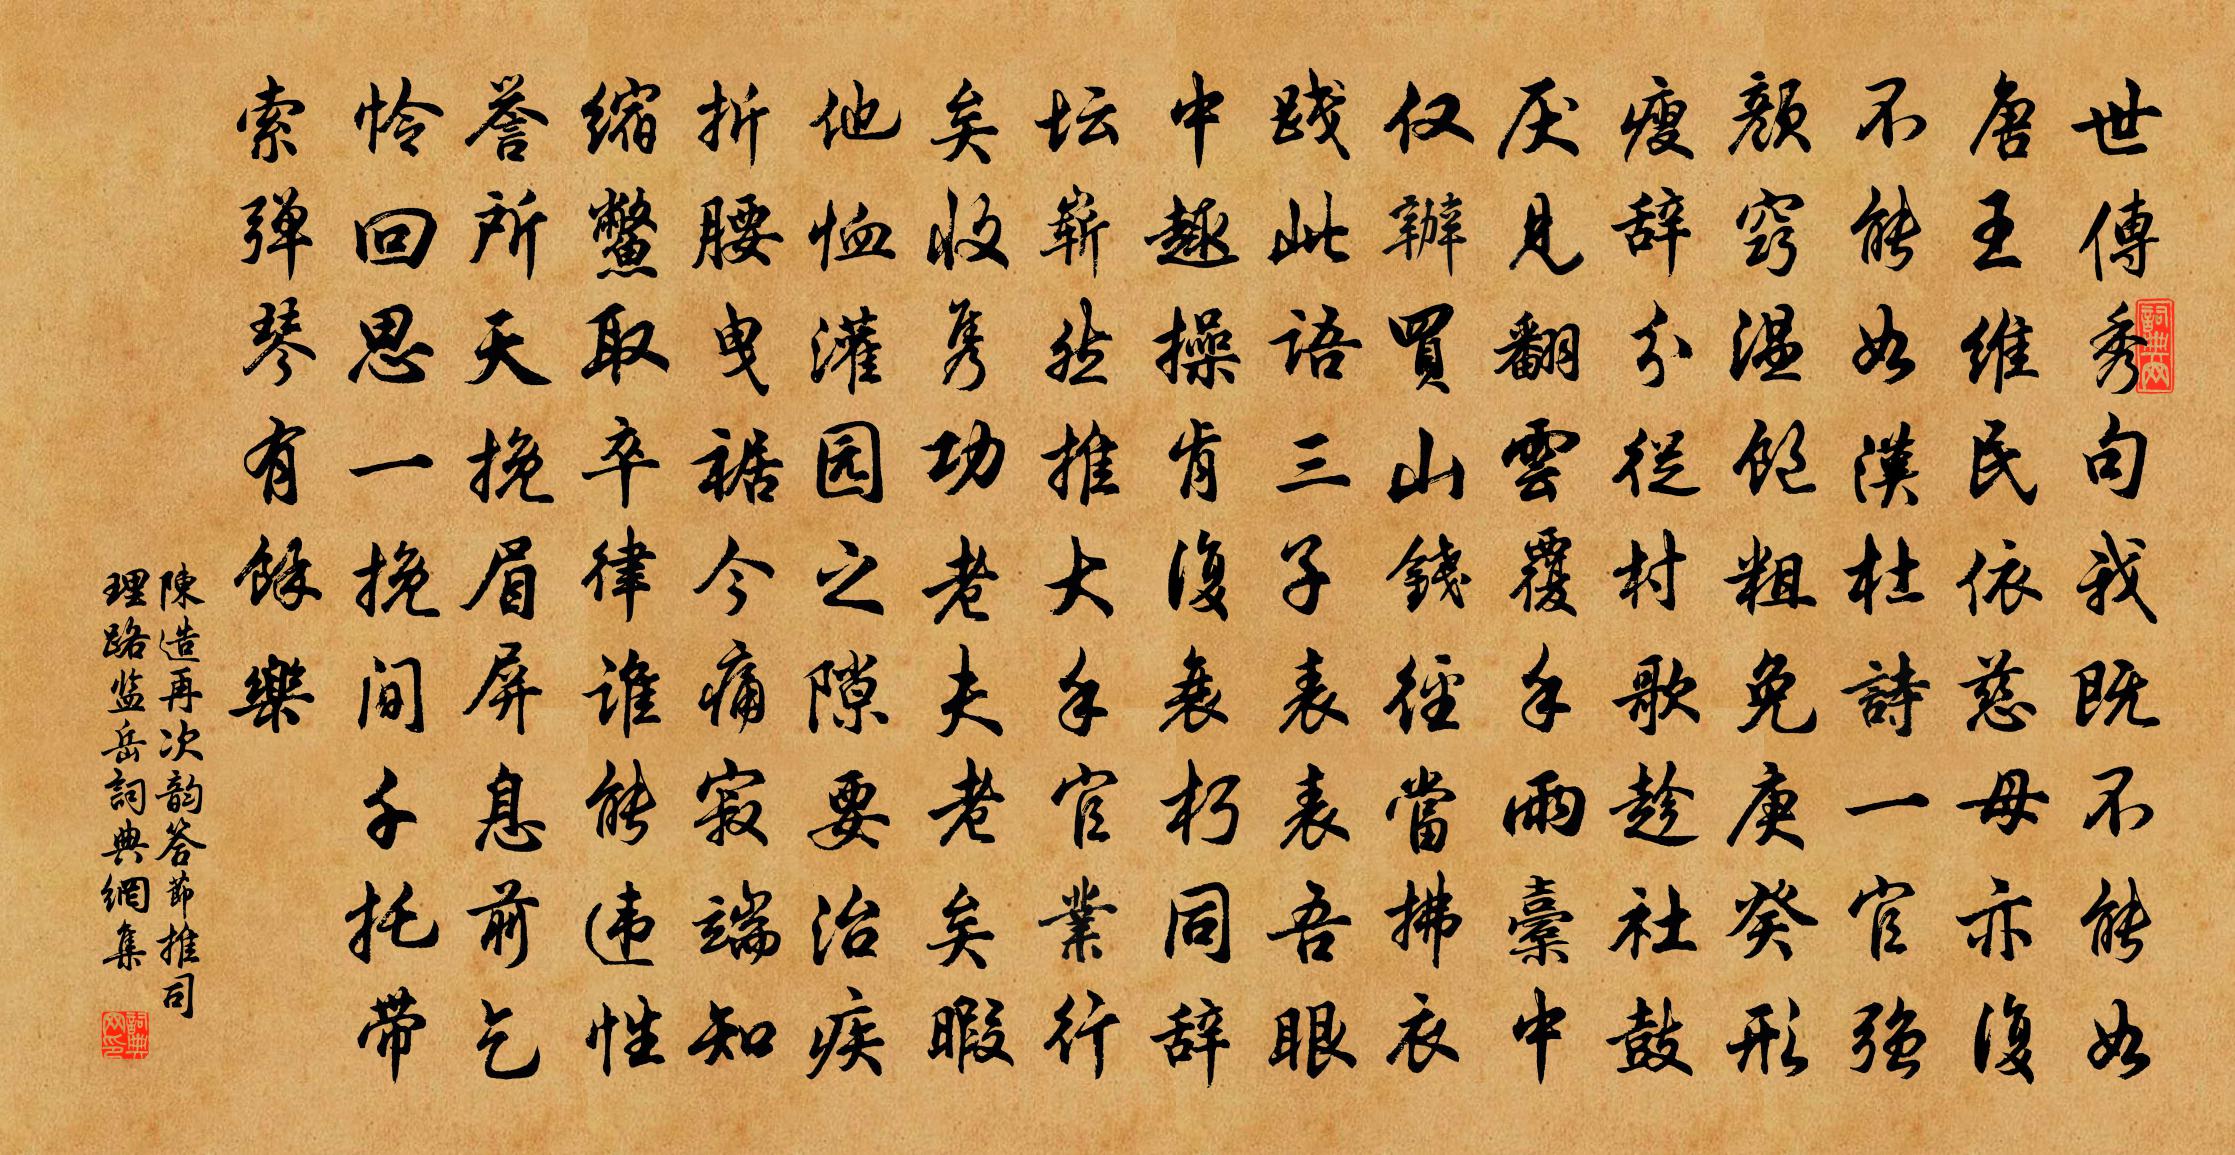 世傳秀句我既不能如
唐王维民依慈母亦復
不能如漢杜詩一官强
顔窍温飽粗免庚癸形
瘦辞分從村歌趁社鼓
厌見翻雲覆手雨橐中
仅辦買山錢径當拂衣
践此語三子表表吾眼
中趣操肯復衰朽同辞
坛崭然推大手官業行
矣收隽功老夫老矣暇
他恤灌园之隙要治疾
折腰曳裾今痛寂端知
缩鳖取卒律谁能违性
誉所天挽眉屏息前乞
怜回思一挽间千托带
索弹琴有餘樂
陳造再次韵答節推司
理路监岳詞典網集
詞典网
詞典网印